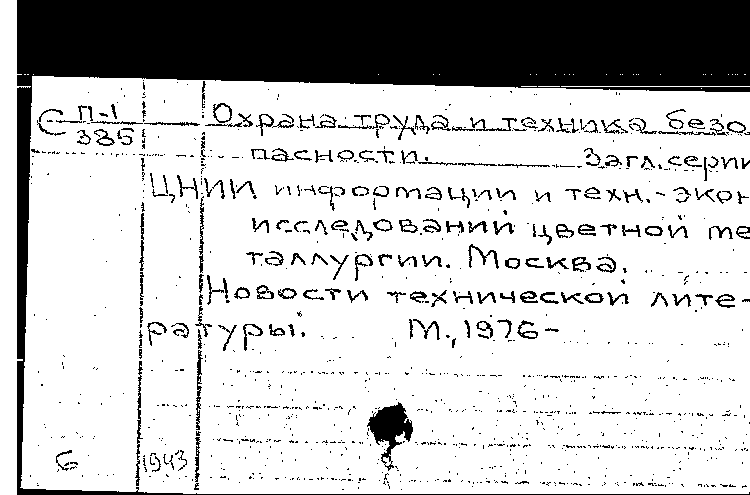 С П-1
385
Охрана труда и техника безо
пасности. Загл.серии
ЦНИИ информации и техн.-экон
исследований цветной ме
таллургии. Москва.
Новости технической лите-
ратуры. М., 1976-
Б 1943